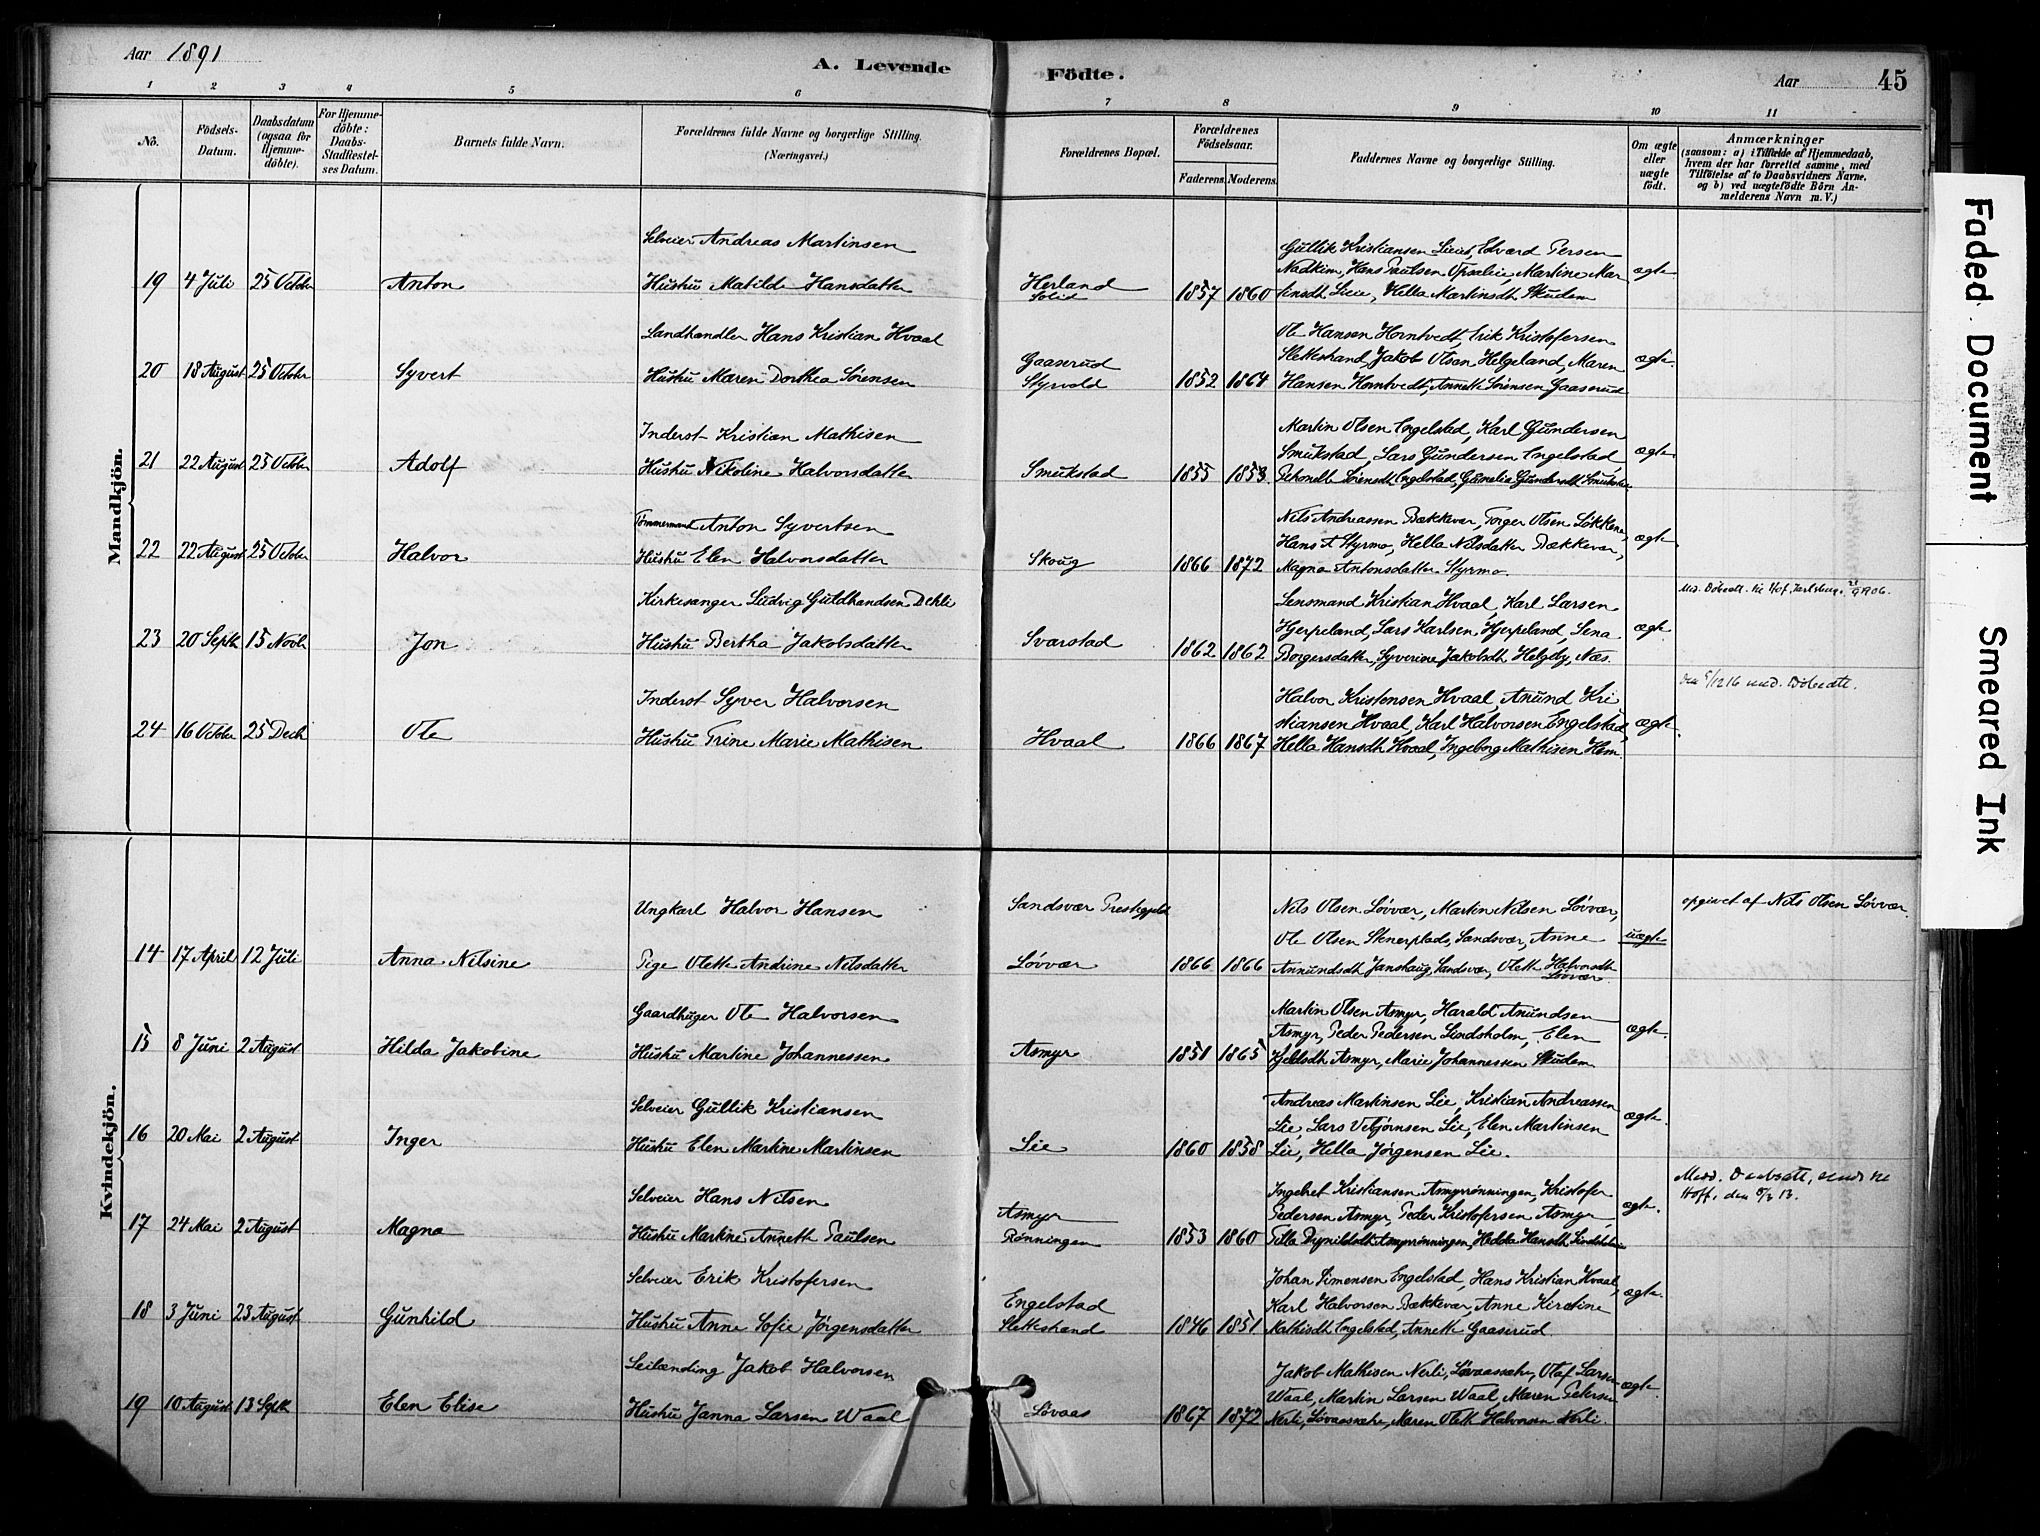 Aar 1891
A. Levende Födte.
Aar 45
1 2 3 4 5 6 7 8 9 10 11
No.
Födsels-Datum.
Daabsdatum (ogsaa for Hjemme-döbte).
For Hjemme-döbte: Daabs-Stadfæstel-ses Datum.
Barnets fulde Navn.
Forældrenes fulde Navne og borgerlige Stilling.
(Næringsvei.)
Forældrenes Bopæl.
Forældrenes Födselsaar.
Faderens. Moderens.
Faddernes Navne og borgerlige Stilling.
Om ægte eller uægte födt.
Anmærkninger
(saasom: a) i Tilfælde af Hjemmedaab, hvem der har forrettet samme, med Tilföielse af to Daabsvidners Navne, og b) ved uægtefödte Börn An-melderens Navn m. V.)
Mandkjön.
Selveier Andreas Martinsen
Gullik Kristiansen Lieie, Edvard Persen
Nadkim, Hans Paulsen Opsalie, Martine Mar
19 4 Juli 25 Octobr Anton Hustru Matilde Hansdatter Herland Solid 1857 1860 tinsdtr Lieie, Hella Martinsdtr Skudem ægte
Landhandler Hans Kristian Hvaal
Ole Hansen Horntvedt, Erik Kristofersen
Slettestrand, Jakob Olsen Helgeland, Maren
20 18 August 25 Octobr Syvert Hustru Maren Dorthea Sørensen Gaaserud Styrvold 1852 1864 Hansen Horntvedt, Annette Sørensen Gaaserud ægte.
Inderst Kristian Mathisen
Martin Olsen Engelstad, Karl Gundersen
Smukstad, Lars Gundersen Engelstad
21 22 August 25 Octobr Adolf Hustru Nikoline Halvorsdatter Smukstad 1855 1853 Sørensdtr Engelstad, Gundersdtr Smukstad ægte.
Tømmermand Anton Syvertsen
Nils Andreassen Bækkevar, Torger Olsen Løkkene,
Hans A Styrmo, Hella Nilsdatter Bækkevar,
22 22 August 25 Octobr Halvor Hustru Elen Halvorsdatter Skoug 1866 1872 Magna Antonsdatter Styrmo. ægte.
Med. Døbeatt. til Hof, Jarlsberg, 1906.
Kirkesanger Ludvig Guldbrandsen Dehli
Lensmand Kristian Hvaal, Karl Larsen
Hjerpeland, Lars Karlsen Hjerpeland, Lena
23 20 Septbr 15 Novbr Jon Hustru Bertha Jakobsdatter Svarstad 1862 1862 Borgersdatter, Syverine Jakobsdtr Helgeby, Næs. ægte
den 5/12 16 med. Døbeatt.
Inderst Syver Halvorsen
Halvor Kristensen Hvaal, Anund Kri
stiansen Hvaal, Karl Halvorsen Engelstad,
24 16 Octobr 25 Decbr Ole Hustru Trine Marie Mathisen Hvaal 1866 1867 Hella Hansdtr Hvaal, Ingeborg Mathisen Hem. ægte.
Kvindekjön.
Ungkarl Halvor Hansen Sandsvær Prestegjeld
Nils Olsen Løvvær, Martin Nilsen Løvvær,
opgivet af Nils Olsen Løvvær.
Ole Olsen Stenerplads, Sandsvær, Anne
14 17 April 12 Juli Anna Nilsine Pige Olette Andrine Nilsdatter Løvvær 1866 1866 Annundsdtr Janshaug, Sandsvær, Olette Halvorsdtr Løvvær uægte
Gaardbruger Ole Halvorsen
Martin Olsen Asmyr, Harald Anundsen
Asmyr, Peder Pedersen Lindsholm, Elen
15 8 Juni 2 August Hilda Jakobine Hustru Martine Johannessen Asmyr 1851 1865 Kjeldsdtr Asmyr, Marie Johannessen Skudem ægte.
Selveier Gullik Kristiansen
Andreas Martinsen Lie, Kristian Andreassen
Lie, Lars Vebjørnsen Lie, Elen Martinsen
16 20 Mai 2 August Inger Hustru Elen Martine Martinsen Lie 1860 1858 Lie, Hella Jørgensen Lie. ægte.
Selveier Hans Nilsen
Ingebret Kristiansen Asmyrrønningen, Kristofer
Pedersen Asmyr, Peder Kristofersen Asmyr,
17 24 Mai 2 August Magna Hustru Martine Annette Paulsen Asmyr Rønningen 1853 1860 Asmyrrønningen, Hedda Hansdtr Lindsholm ægte.
Hoff, den 13.
Selveier Erik Kristofersen
Johan Simensen Engelstad, Hans Kristian Hvaal,
Karl Halvorsen Bækkevar, Anne Kirstine
18 3 Juni 23 August Gunhild Hustru Anne Sofie Jørgensdatter Engelstad Slettestrand 1846 1851 Mathisdtr Engelstad, Annette Gaaserud. ægte.
Leilænding Jakob Halvorsen
Jakob Mathisen Nerli, Løvaasæhe, Olaf Larsen
Waal, Martin Larsen Waal, Maren Petersen
19 10 August 13 Septbr Elen Elise Hustru Janna Larsen Waal Løvaas 1867 1872 Nerli, Maren Olette Halvorsen Nerli ægte.
Faded Document
Smeared Ink